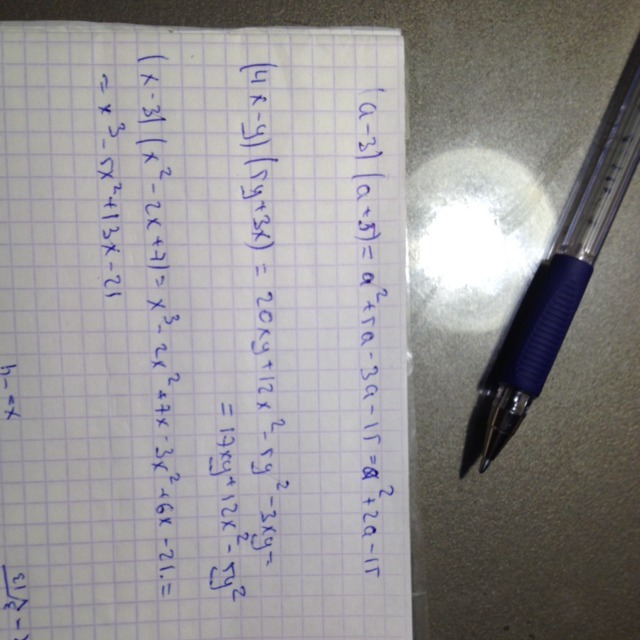 (a-3)(a+5)=a²+5a-3a-15=a²+2a-15
(4x-y)(5y+3x)=20xy+12x²-5y²-3xy=
=17xy+12x²-5y²
(x-3)(x²-2x+7)=x³-2x²+7x-3x²+6x-21.=
=x³-5x²+13x-21